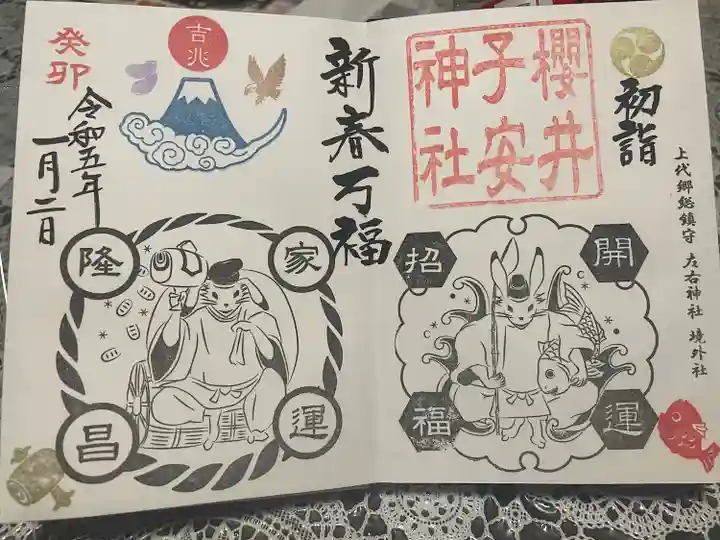 初詣
上代郷総鎮守 左右神社 境外社
櫻井
子安
神社
開運
招福
新春万福
吉兆
癸卯
令和五年
一月二日
家運
隆昌